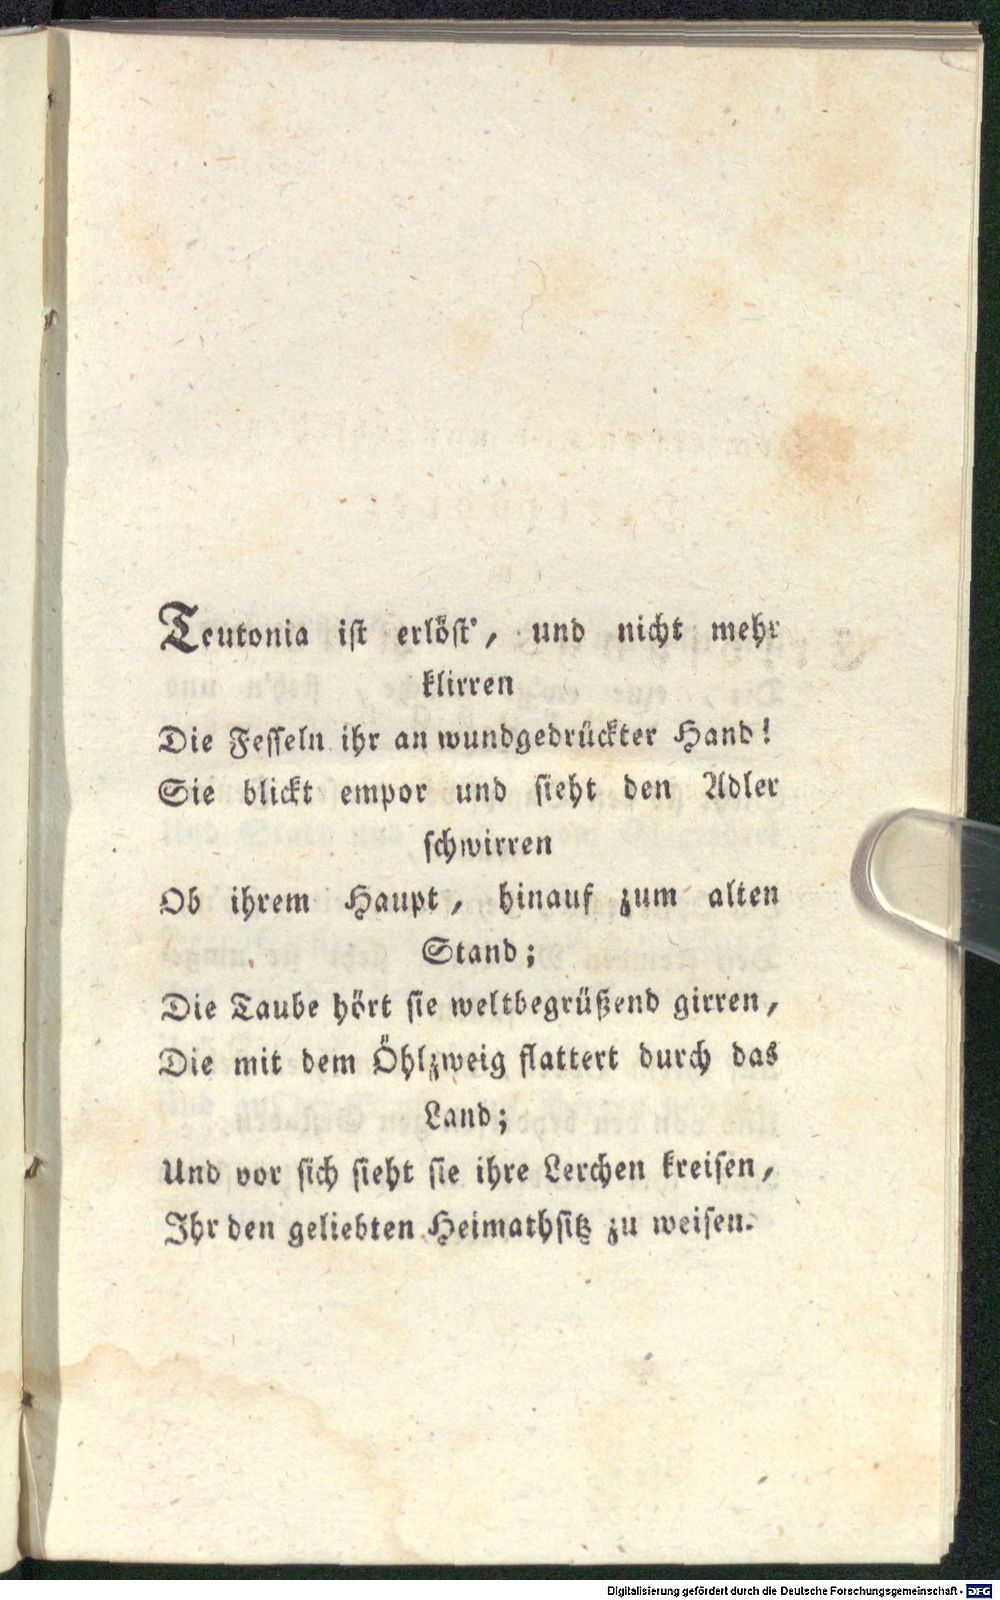 Teutonia ist erlöst’, und nicht mehr
klirren
Die Fesseln ihr an wundgedrückter Hand!
Sie blickt empor und sieht den Adler
schwirren
Ob ihrem Haupt, hinauf zum alten
Stand;
Die Taube hört sie weltbegrüßend girren,
Die mit dem Öhlzweig flattert durch das
Land;
Und vor sich sieht sie ihre Lerchen kreisen,
Ihr den geliebten Heimathsitz zu weisen.
Digitalisierung gefördert durch die Deutsche Forschungsgemeinschaft - DFG